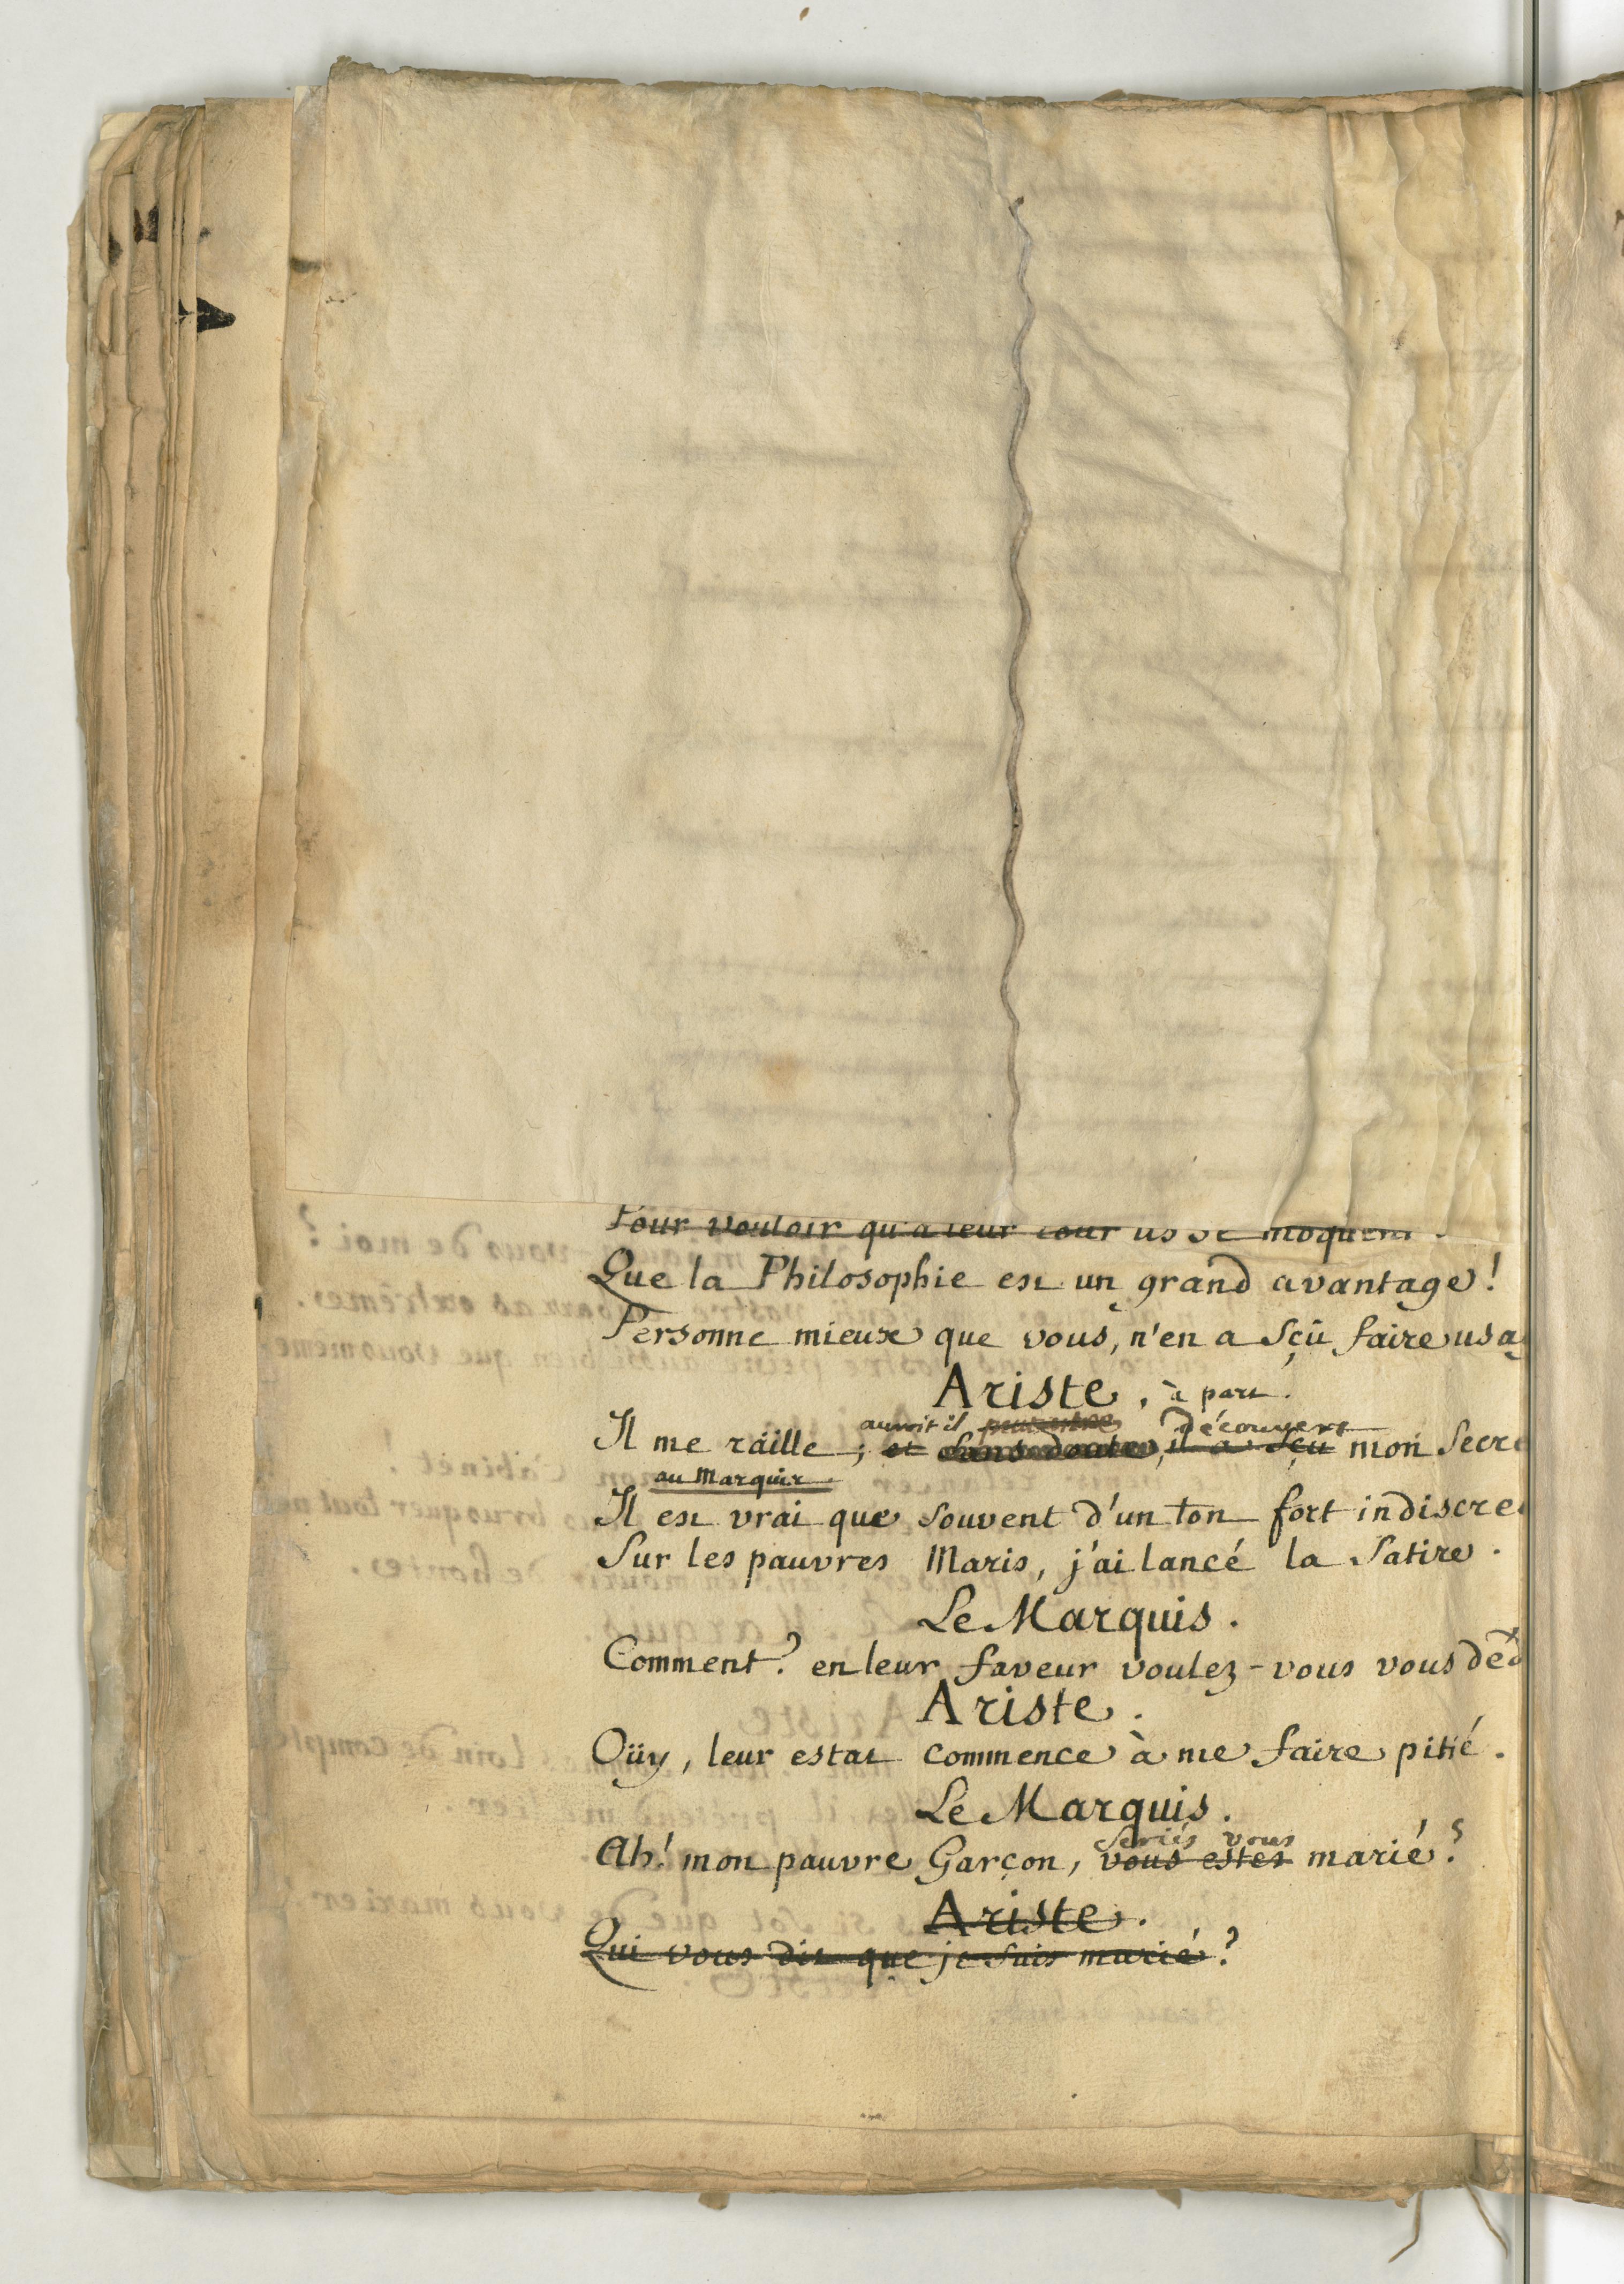 Pour vouloir qu'a leur tour ils se moquent.
Que la Philosophie est un grand avantage!
Personne mieux que vous, n'en a sçû faire usa
Ariste, à part.
auroit il peut estre découvert
Il me raille; et sans doute, il a sçu mon secre
au Marquis
Il est vrai que souvent d'un ton fort indiscre
Sur les pauvres Maris, j'ai lancé la Satire.
Le Marquis.
Comment? en leur faveur voulez-vous vous déd
Ariste.
Oüy, leur estat commence à me faire pitié.
Le Marquis.
seriés vous
Ah! mon pauvre Garçon, vous estes marié?
Ariste.
Qui vous dit que je suis marié?